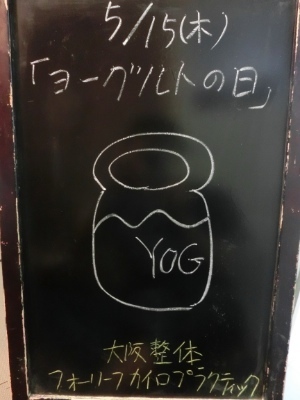 5/15(木)
「ヨーグルトの日」
YOG
大阪整体
フォーリーフカイロプラクティック